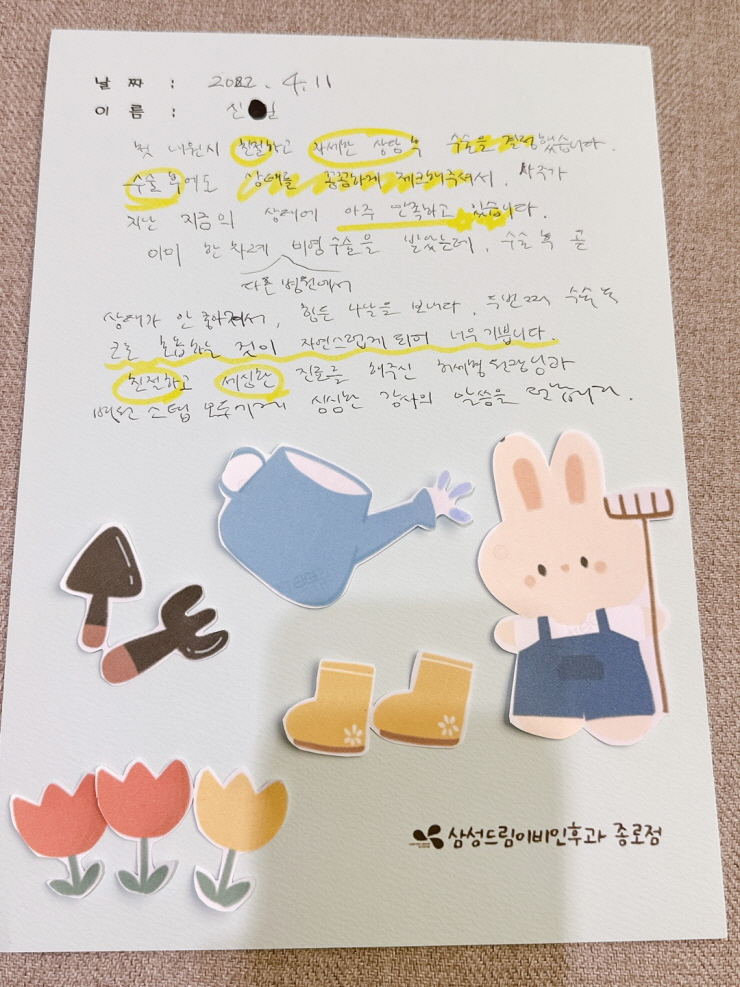 날 짜 : 2022. 4. 11
이 름 : 신 일
첫 내원시 친절하고 자세한 상담 후 수술을 결정했습니다.
수술 후에도 상태를 꼼꼼하게 체크해주셔서, 4주가
지난 지금의 상태에 아주 만족하고 있습니다.
이미 한 차례 비염수술을 받았는데, 수술 후 곧
다른 병원에서
상태가 안 좋아져서, 힘든 나날을 보내다, 두번째 수술 후
코로 호흡하는 것이 자연스럽게 되어 너무 기쁩니다.
친절하고 세심한 진료를 해주신 원장님과
병원 스탭 모두에게 심심한 감사의 말씀을 드립니다.
삼성드림이비인후과 종로점